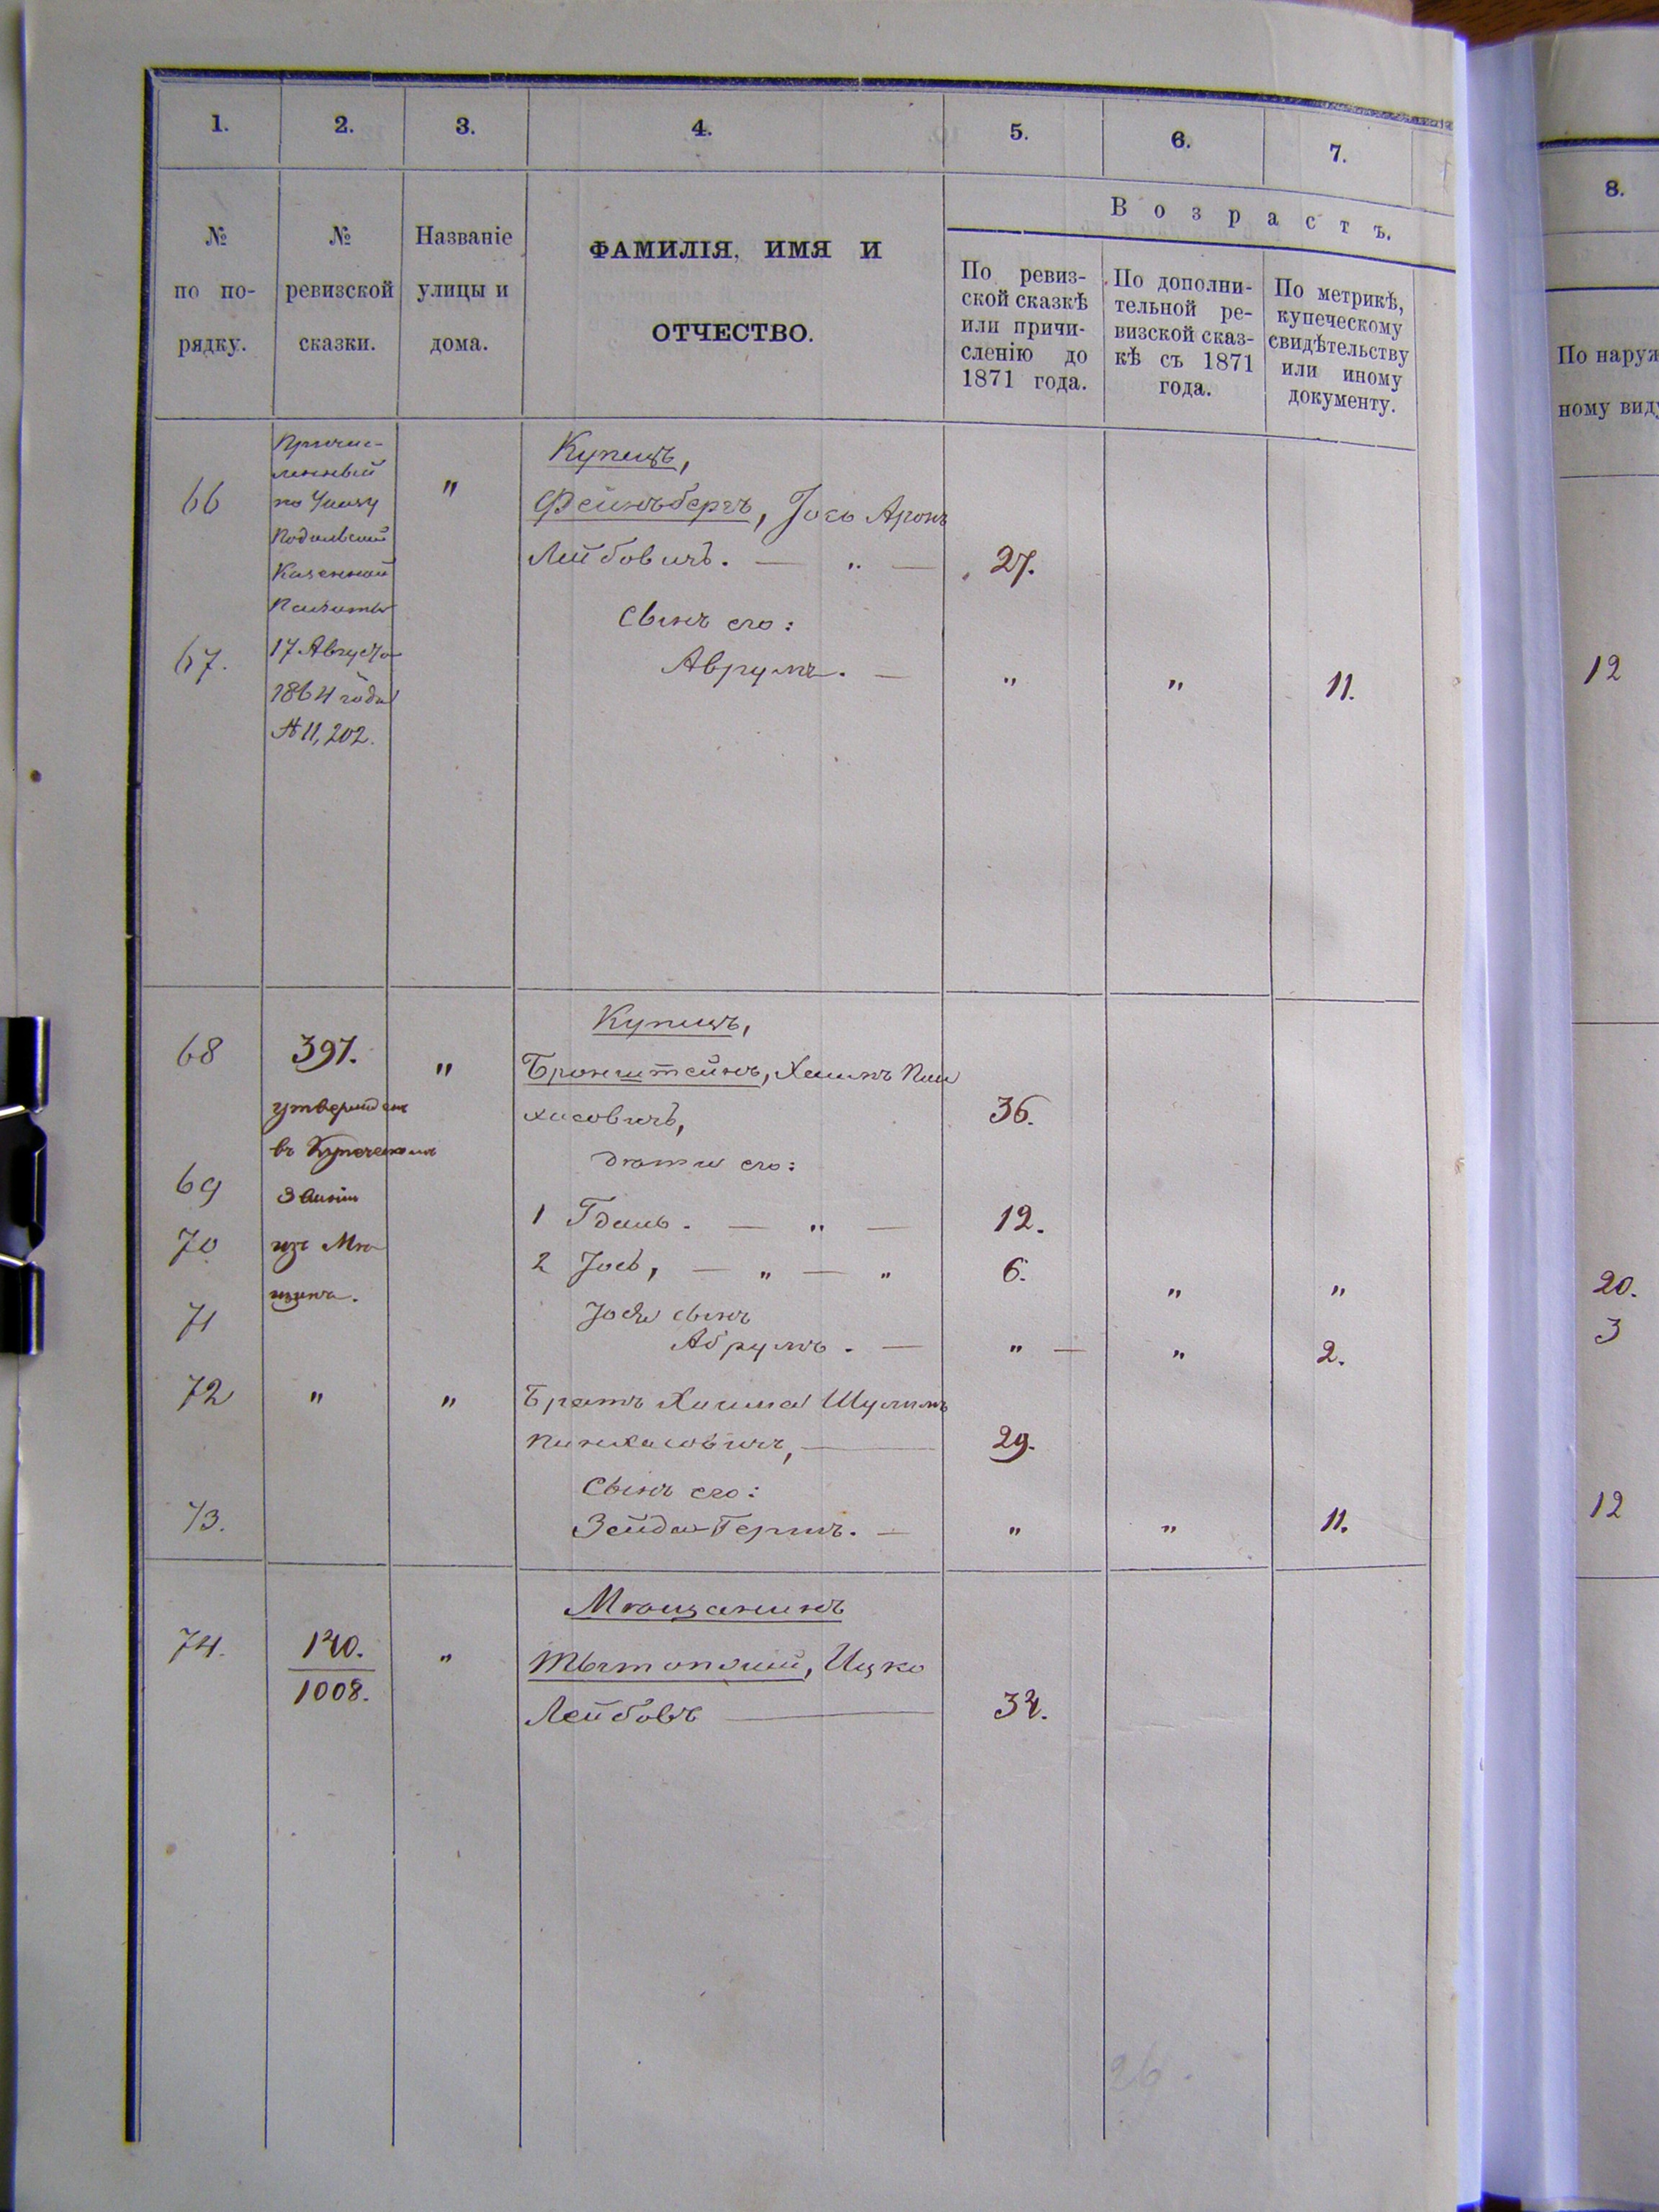 1. 2. 3. 4. 5. 6. 7.
Возрастъ.
№ по по-рядку.
№ ревизской сказки.
Названіе улицы и дома.
ФАМИЛІЯ, ИМЯ И
ОТЧЕСТВО.
По ревиз-
ской сказкѣ
или причи-
сленію до
1871 года.
По дополни-
тельной ре-
визской сказ-
кѣ съ 1871
года.
По метрикѣ,
купеческому
свидѣтельству
или иному
документу.
8.
По наруж
ному виду
Причис-
ленный
по Указу
Подольской
Казенной
Палаты
17 Августа
1864 года
№ 11,202.
66 "
Купецъ,
Фейнъбергъ, Іось Аронъ
Лейбовичъ. — " — 27.
Сынъ его:
67. Аврумъ. — " " 11. 12
Купецъ,
68 397. " Бронштейнъ, Хаимъ Пин
хасовичъ, 36.
утвержденъ
въ Купеческомъ
Званіи
изъ Мѣ
щанъ.
дѣти его:
69 1 Гдаль. — " — 12.
70. 2 Іось, — " — " 6. " " 20.
Іося сынъ
71 Абрумъ. — " — " 2. 3
72 " " Братъ Хаима Шулимъ
Пинхасовичъ, — 29.
Сынъ его:
73. Зейда-Гершъ. — " " 11. 12
Мѣщанинъ
74. 140. "
1008.
Ицко
Лейбовъ — 34.
26.